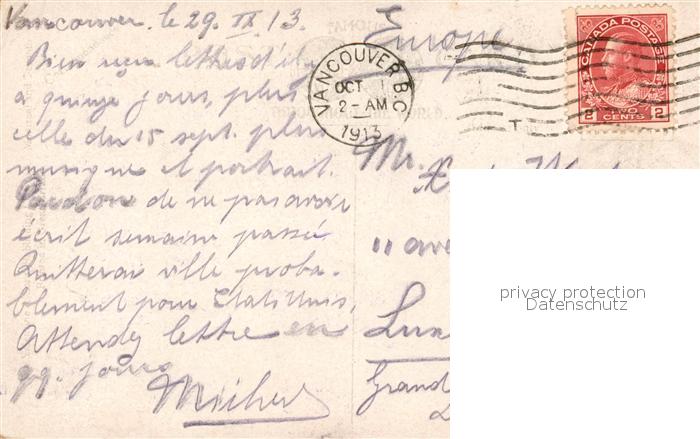 Vancouver. le 29. IX. 13.
Bien reçu lettres d'il
a quinze jours, plus
celle du 15 sept. plus
musique et portrait.
Pardon de ne pas avoir
écrit semaine passée.
Quitterai ville proba-
blement pour Etats Unis,
Attendez lettre en
qq. jours
Michel
Europe
VANCOUVER B.C.
OCT 1
2-AM
1913
CANADA POSTAGE
2 TWO CENTS 2
T
Mr.
11 ave
Lux
Grand
privacy protection
Datenschutz